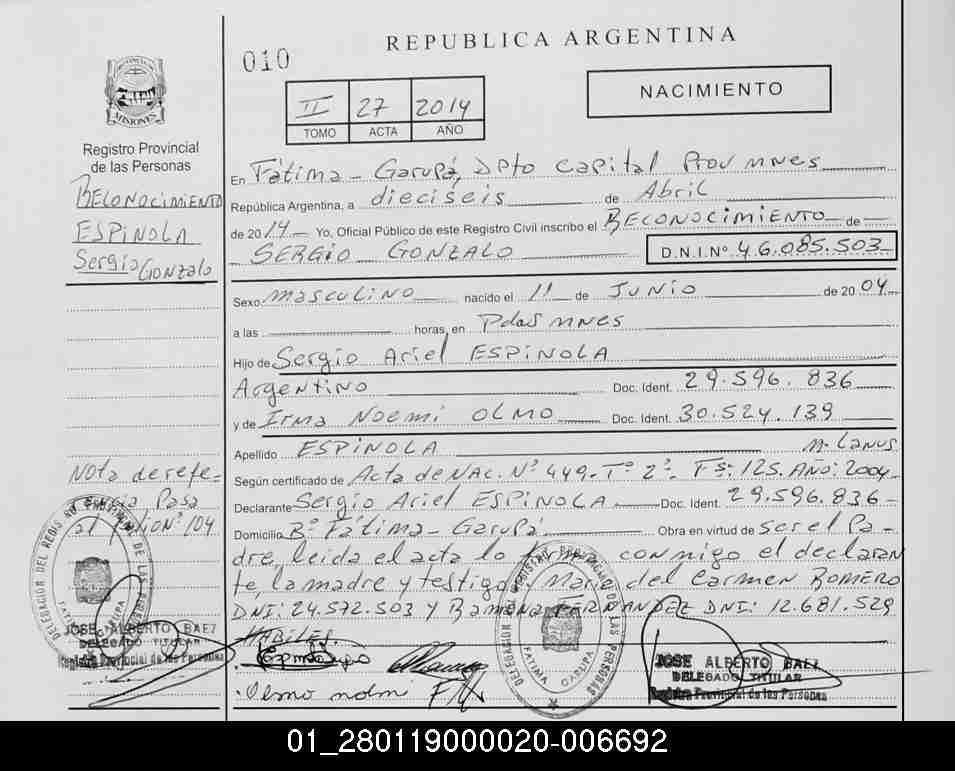 010
REPUBLICA ARGENTINA
NACIMIENTO
II 27 2014
TOMO ACTA AÑO
MISIONES
Registro Provincial
de las Personas
RECONOCIMIENTO
ESPINOLA
Sergio Gonzalo
Nota de refe-
rencia Pasa
al folio Nº 104
En Fátima - Garupá, Dpto Capital Prov Mnes
República Argentina, a dieciseis de Abril
de 2014 Yo, Oficial Público de este Registro Civil inscribo el RECONOCIMIENTO de
SERGIO GONZALO D.N.I.Nº 46.085.503
Sexo masculino nacido el 11 de JUNIO de 2004
a las horas, en Pdas Mnes
Hijo de Sergio Ariel ESPINOLA
Argentino Doc. Ident. 29.596.836
y de Irma Noemi OLMO Doc. Ident. 30.524.139
Apellido ESPINOLA M. Lanus
Según certificado de Acta de NAC. Nº 449-Tº 2º- Fs: 125. AÑO: 2004
Declarante Sergio Ariel ESPINOLA Doc. Ident. 29.596.836
Domicilio Bº Fátima - Garupá Obra en virtud de ser el Pa-
dre, leida el acta lo firman conmigo el declaran
te, la madre y testigo Maria del Carmen ROMERO
DNI: 24.572.503 Y Ramona FERNANDEZ DNI: 12.681.529
HABILES.
Olmo
DELEGACION DEL REGISTRO PROVINCIAL DE LAS PERSONAS
FATIMA GARUPA
JOSE ALBERTO BAEZ
DELEGADO TITULAR
Registro Provincial de las Personas
DELEGACION DEL REGISTRO PROVINCIAL DE LAS PERSONAS
FATIMA GARUPA
JOSE ALBERTO BAEZ
DELEGADO TITULAR
Registro Provincial de las Personas
01_280119000020-006692